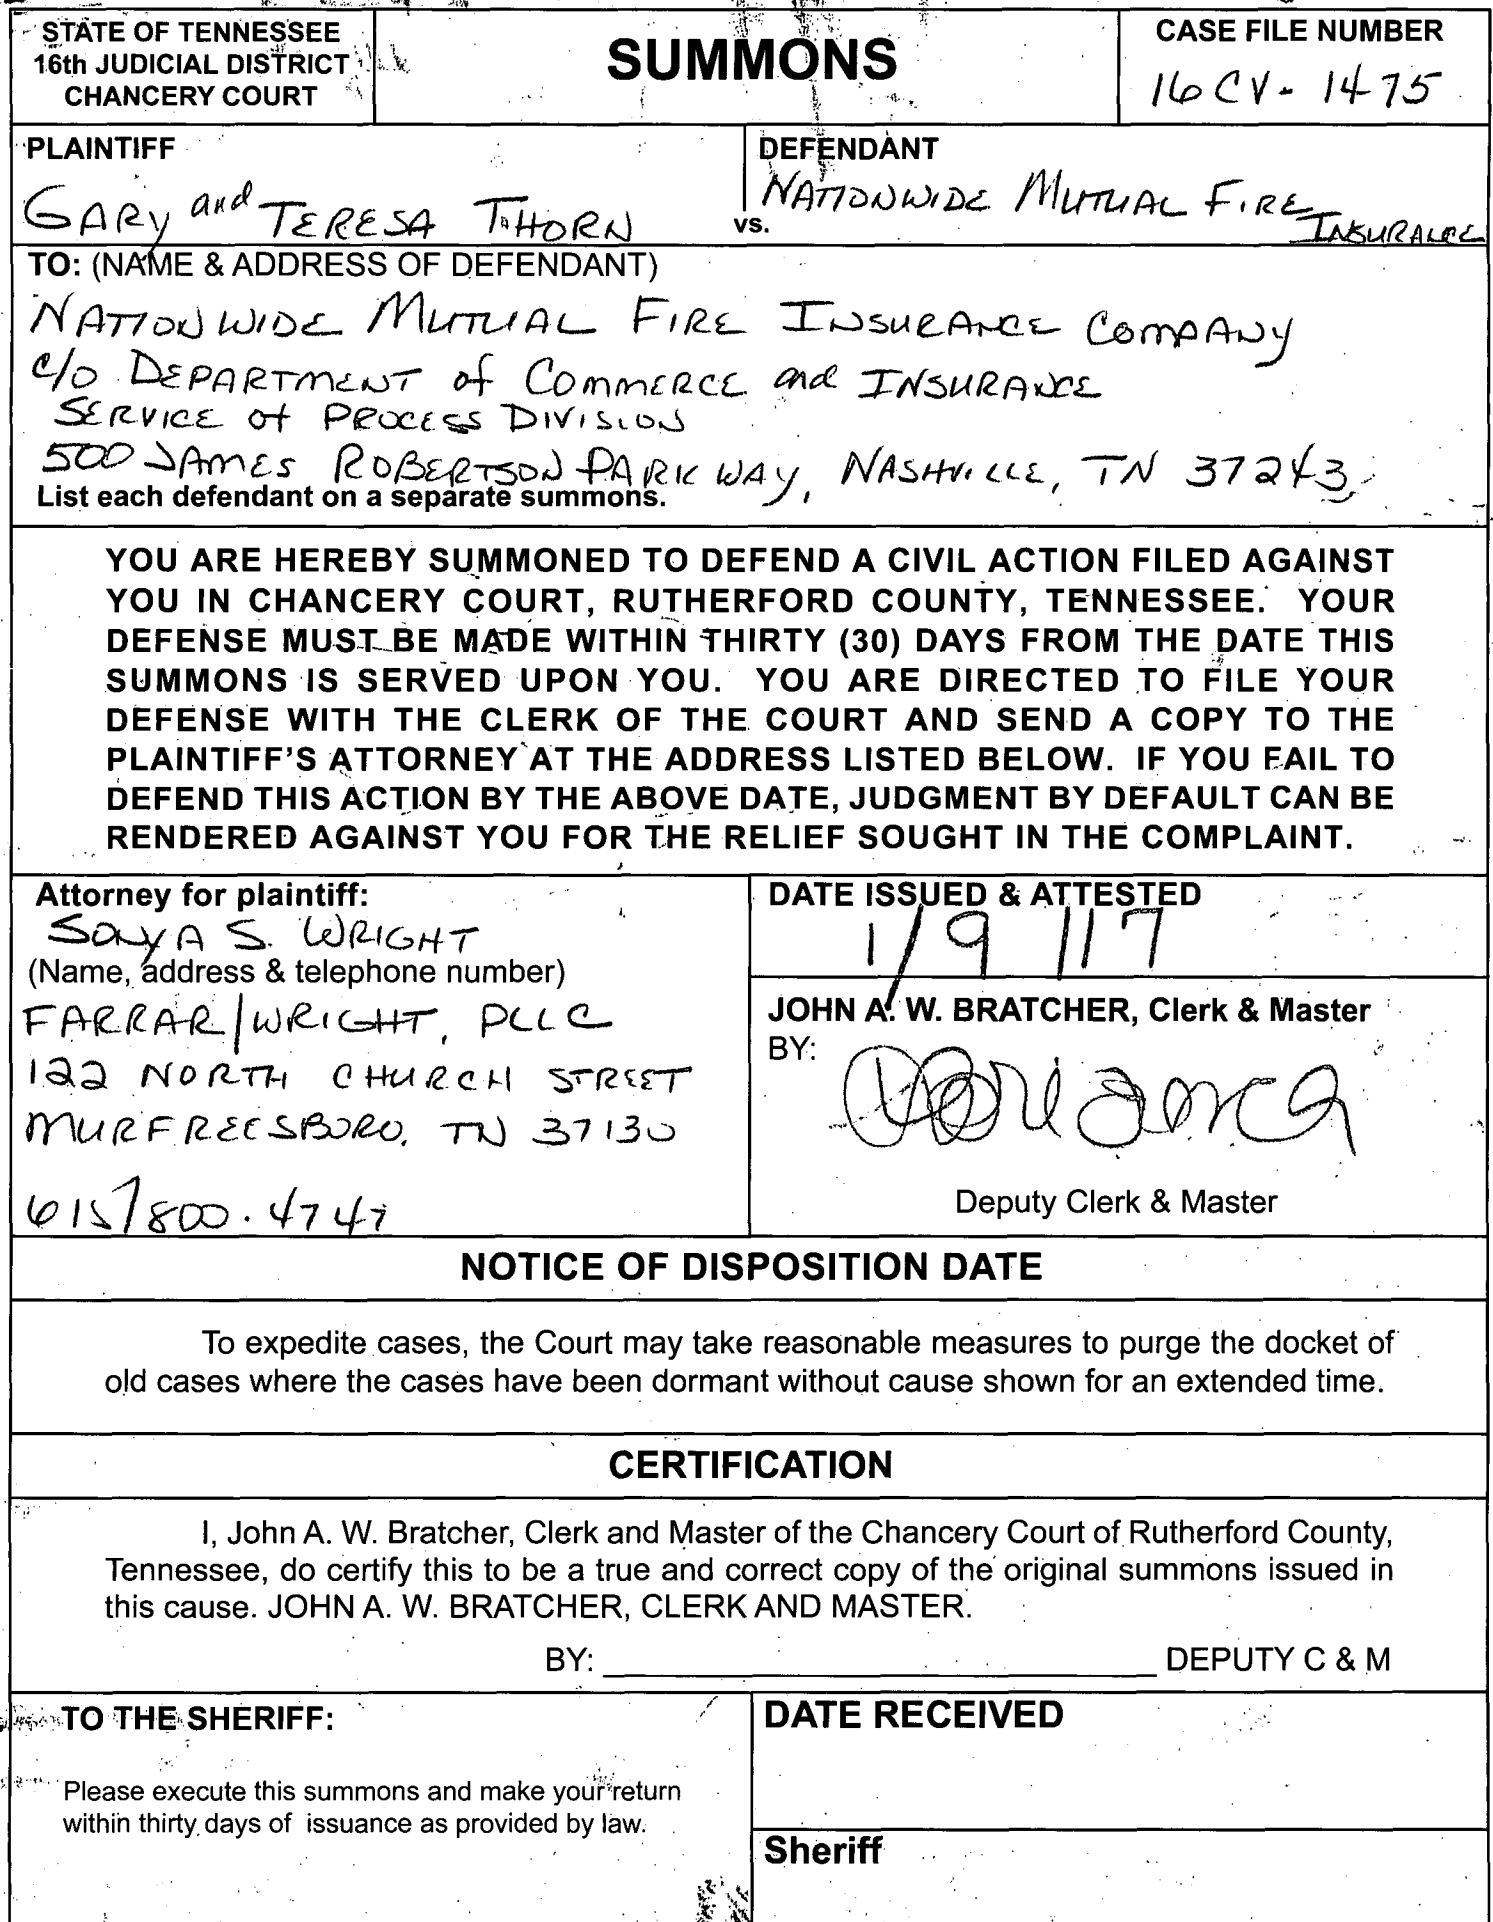 STATE OF TENNESSEE
16th JUDICIAL DISTRICT
CHANCERY COURT
SUMMONS
CASE FILE NUMBER
16CV-1475
PLAINTIFF
GARY and TERESA THORN
vs.
DEFENDANT
NATIONWIDE MUTUAL FIRE
INSURANCE
TO: (NAME & ADDRESS OF DEFENDANT)
NATIONWIDE MUTUAL FIRE INSURANCE COMPANY
c/o DEPARTMENT of COMMERCE and INSURANCE
SERVICE of PROCESS DIVISION
500 JAMES ROBERTSON PARKWAY, NASHVILLE, TN 37243
List each defendant on a separate summons.
YOU ARE HEREBY SUMMONED TO DEFEND A CIVIL ACTION FILED AGAINST
YOU IN CHANCERY COURT, RUTHERFORD COUNTY, TENNESSEE. YOUR
DEFENSE MUST BE MADE WITHIN THIRTY (30) DAYS FROM THE DATE THIS
SUMMONS IS SERVED UPON YOU. YOU ARE DIRECTED TO FILE YOUR
DEFENSE WITH THE CLERK OF THE COURT AND SEND A COPY TO THE
PLAINTIFF'S ATTORNEY AT THE ADDRESS LISTED BELOW. IF YOU FAIL TO
DEFEND THIS ACTION BY THE ABOVE DATE, JUDGMENT BY DEFAULT CAN BE
RENDERED AGAINST YOU FOR THE RELIEF SOUGHT IN THE COMPLAINT.
Attorney for plaintiff:
SONYA S. WRIGHT
(Name, address & telephone number)
FARRAR/WRIGHT, PLLC
122 NORTH CHURCH STREET
MURFREESBORO, TN 37130
615/800.4747
DATE ISSUED & ATTESTED
1/9/17
JOHN A. W. BRATCHER, Clerk & Master
BY:
Deputy Clerk & Master
NOTICE OF DISPOSITION DATE
To expedite cases, the Court may take reasonable measures to purge the docket of
old cases where the cases have been dormant without cause shown for an extended time.
CERTIFICATION
I, John A. W. Bratcher, Clerk and Master of the Chancery Court of Rutherford County,
Tennessee, do certify this to be a true and correct copy of the original summons issued in
this cause. JOHN A. W. BRATCHER, CLERK AND MASTER.
BY: ______________________ DEPUTY C & M
TO THE SHERIFF:
Please execute this summons and make your return
within thirty days of issuance as provided by law.
DATE RECEIVED
Sheriff